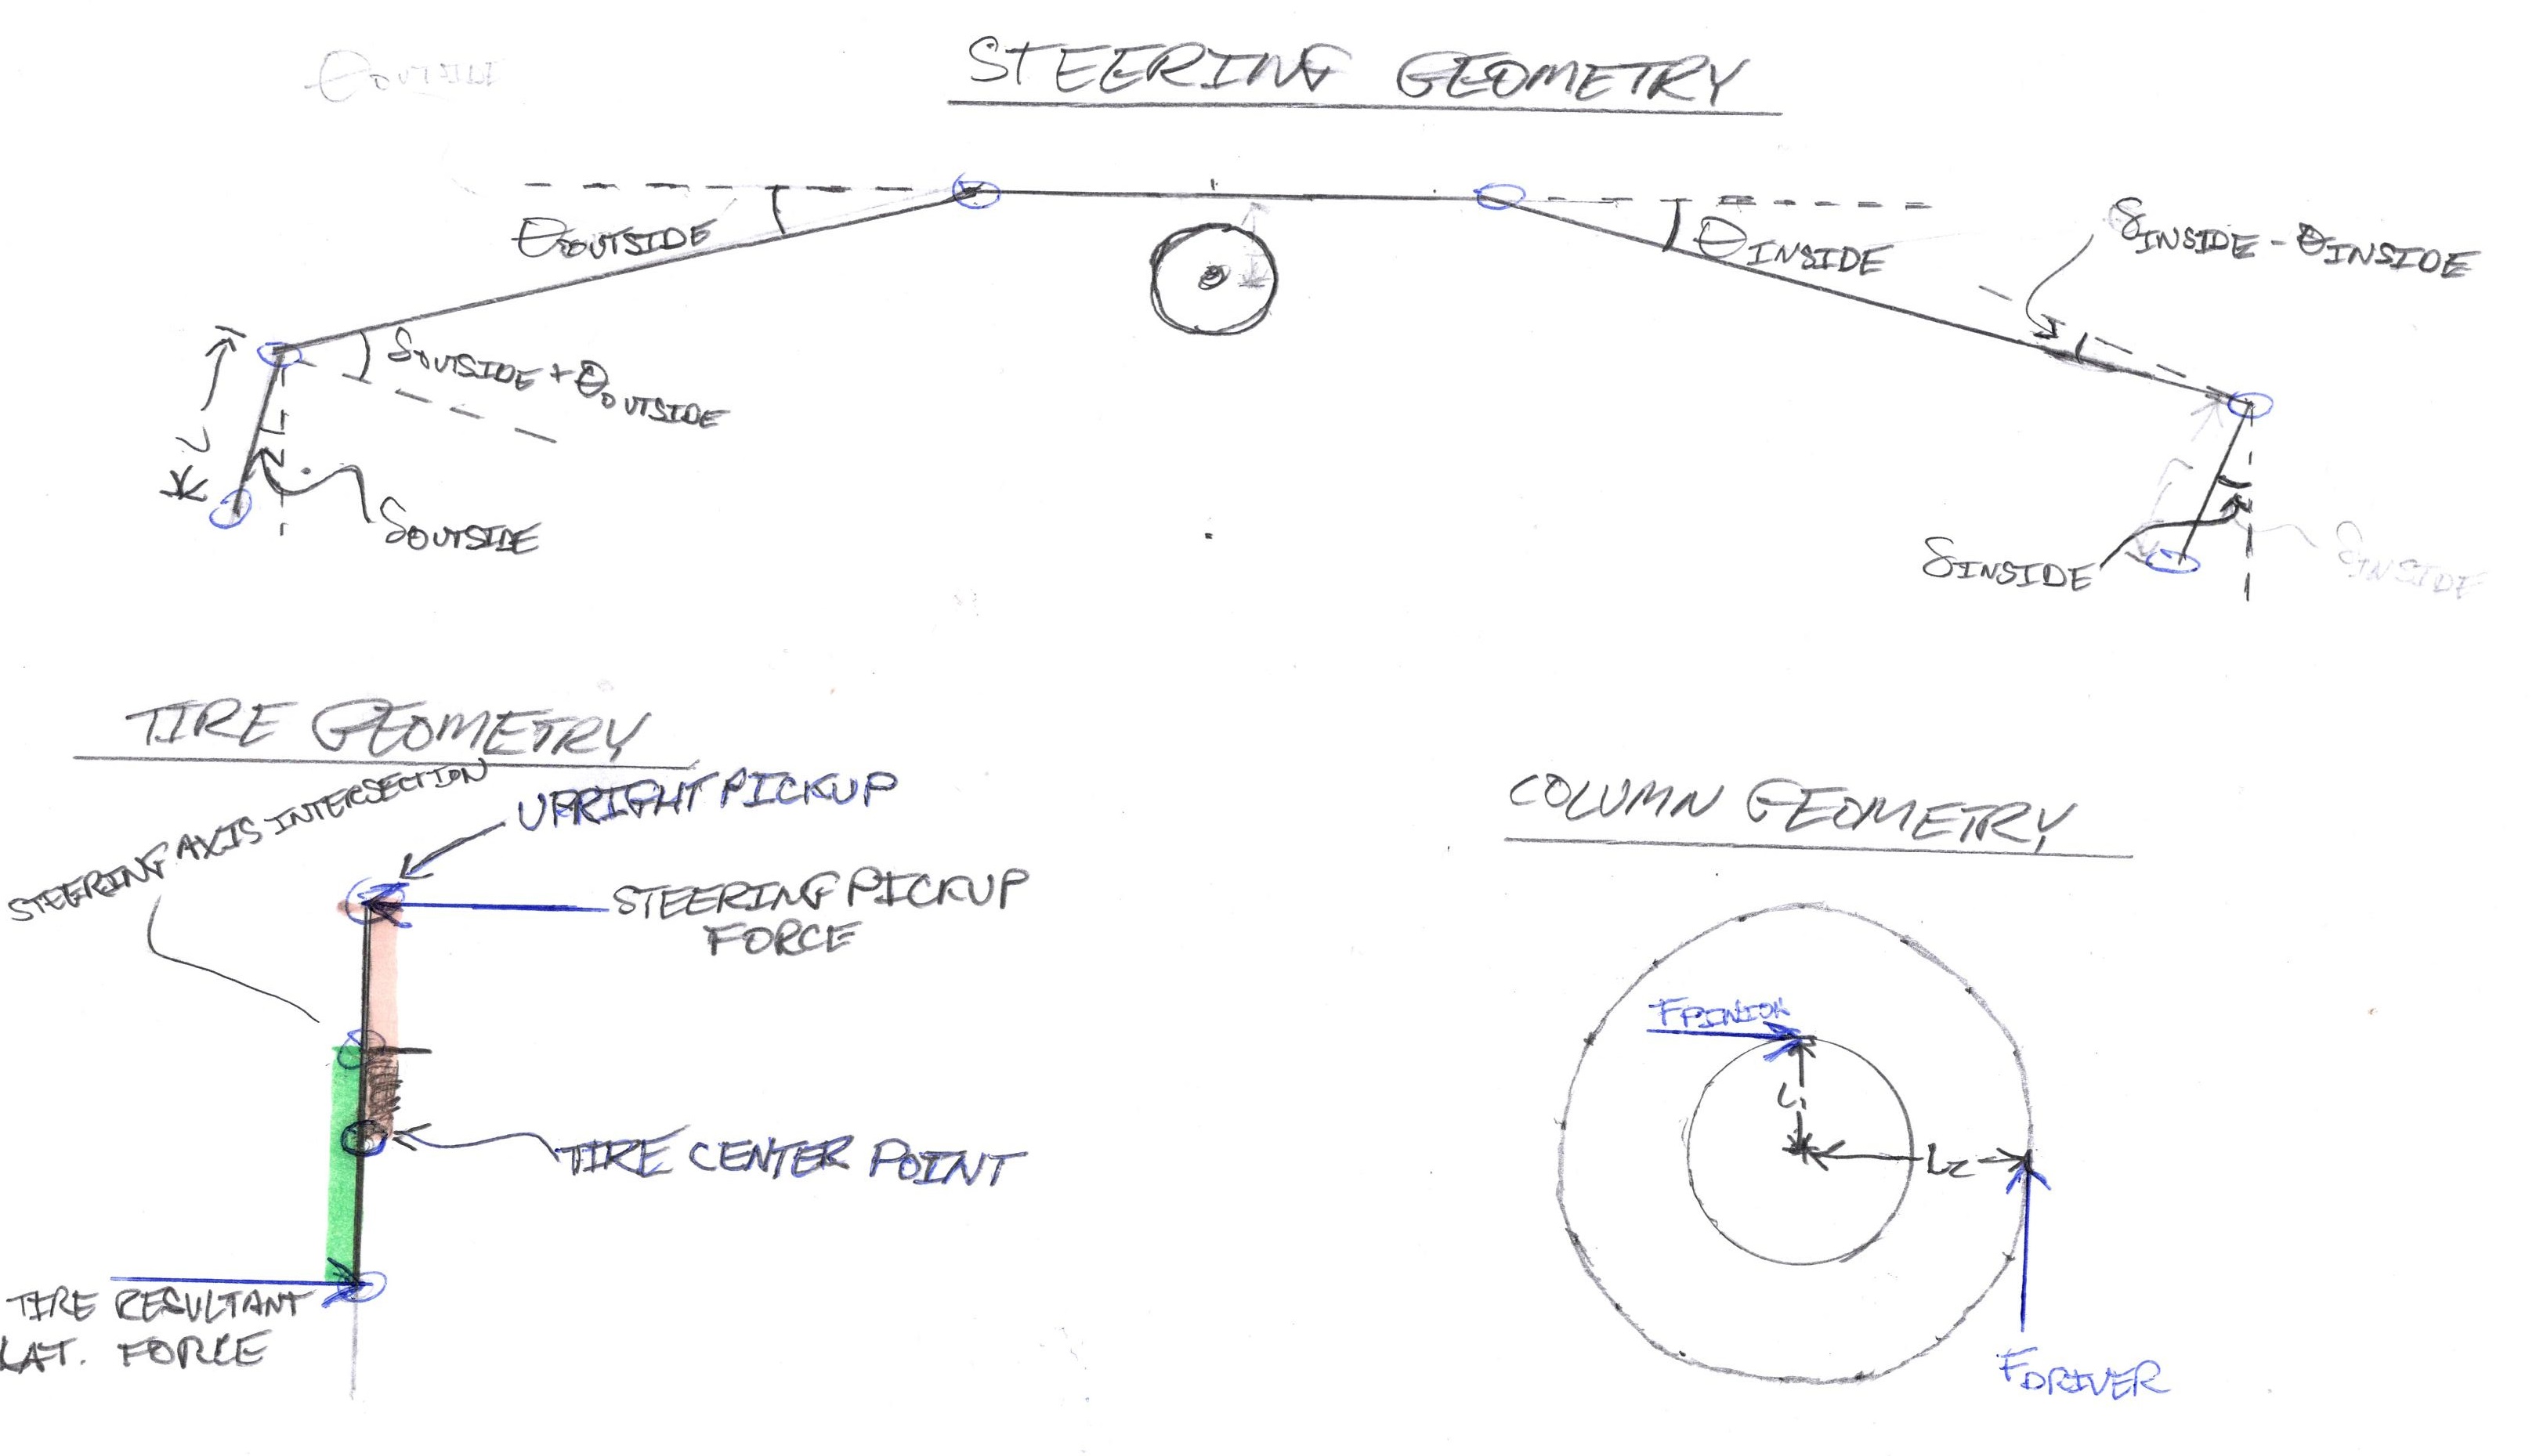 θOUTSIDE
STEERING GEOMETRY
θOUTSIDE
θINSIDE
δINSIDE - θINSIDE
δOUTSIDE + θOUTSIDE
L
δOUTSIDE
δINSIDE
δINSIDE
TIRE GEOMETRY
STEERING AXIS INTERSECTION
UPRIGHT PICKUP
STEERING PICKUP
FORCE
TIRE CENTER POINT
TIRE RESULTANT
LAT. FORCE
COLUMN GEOMETRY
FPINION
L1
L2
FDRIVER